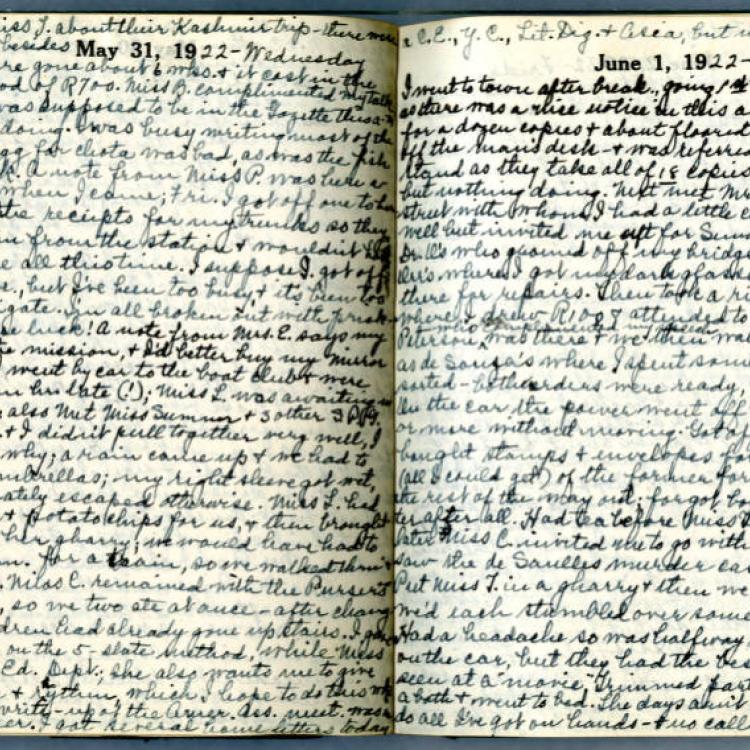 iss J. about their Kashmir trip - there were
besides May 31, 1922 - Wednesday
re gone about 6 wks. & it cost in the
od of R700. Miss B. complimented my talk
was supposed to be in the Gazette this a.m.
doing. I was busy writing most of the
gg for chota was bad, as was the fish
k. A note from Miss P. was here
when I came; Fri. I got off one to her
the receipts for my trunks so they
m from the station & wouldn't
e all this time. I suppose I got off
e., but I've been too busy & it's been too
igate. I'm all broken out with prick-
se luck! A note from Mrs. E. says my
mission, & I'd better buy my mirror
went by car to the boat club & were
an hr. late (!); Miss L. was awaiting
also met Miss Sumner & 3 other
& I didn't pull together very well, I
why; a rain came up & we had to
mbrellas; my right sleeve got wet,
ately escaped otherwise. Miss L. had
& potato chips for us, & then brought
her gharry; we would have had to
for a train, so we walked then &
Miss C. remained with the Purser's
, so we two ate at once - after chang
dren had already gone upstairs. I
on the 5-slate method, while Miss
Ed. Dept.; she also wants me to give
& rythm, which I hope to do this wk
write-up of the Amer. Ass. meet. was
er. I got several home letters today
a C.E., Y.C., Lit. Dig. & Asia, but
June 1, 1922 -
I went to town after break., going 1st
as there was a nice notice in this a
for a dozen copies & about floored
off the man's desk - & was referred
stand as they take all of 18 copies
but nothing doing. Next met Mr
street with whom I had a little
well but invited me out for Sun
Dr. Ill's who ground off my bridge
ler's where I got my dark glass
there for repairs. Then took a r
where I drew R100 & attended to
who complimented my speech
Peterson, was there & we then wa
as de Souza's where I spent som
sorted - both orders were ready,
In the car the power went off
or more without moving. Got
bought stamps & envelopes fo
(all I could get) of the former for
the rest of the way out; forgot
ter after all. Had tea before Miss
later Miss C. invited me to go wit
saw the de Saulles murder ca
Put Miss T. in a gharry & then we
we'd each stumbled over some
Had a headache so was halfway
on the car, but they had the be
seen at a "movie". Trimmed
a bath & went to bed. The days ain't
do all I've got on hands - & no call